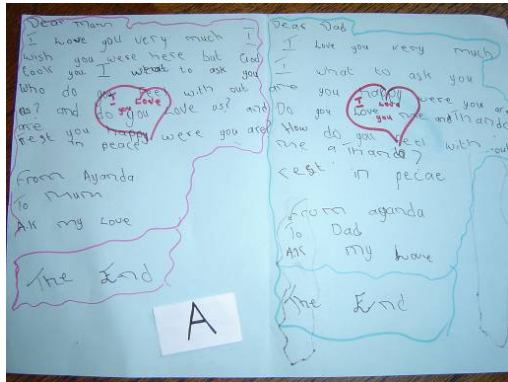 Dear Mum
I Love you very much I
wish you were here but God
took you I what to ask you
Who do you feel with out
as? and do you Love as? and
are you happy were you are?
rest in peace
I Love
you
From Ayanda
To Mum
A.K my Love
The End
A
Dear Dad
I Love you very much
I what to ask you
are you happy were you are
Do you Love me and Thando
How do you feel with out
me a Thando?
I Love
you
rest in pecae
From ayanda
To Dad
A.K my Love
The End